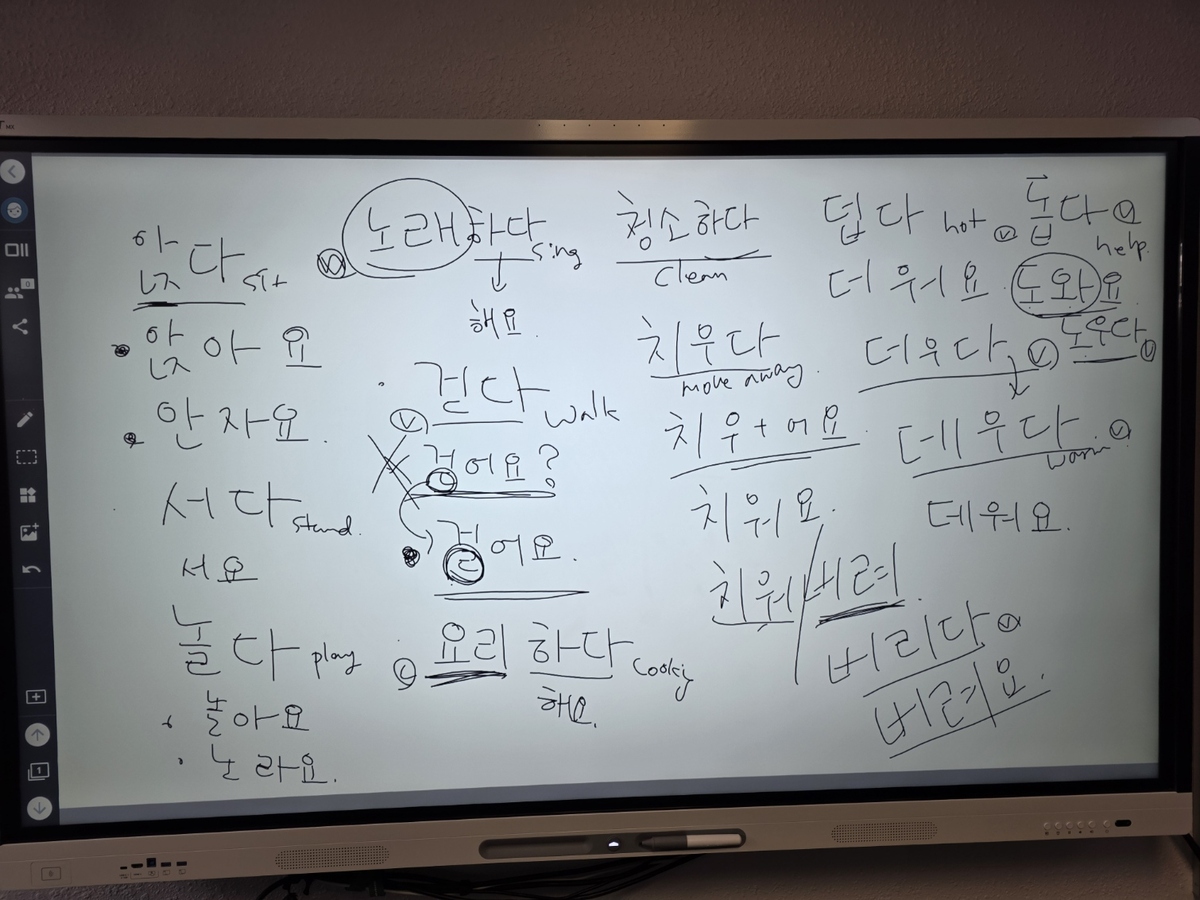 앉다 sit
앉아요
안자요.
서다 stand.
서요
놀다 play
놀아요
노라요.
노래하다 sing
해요.
걷다 walk
걷어요?
걸어요.
요리하다
해요.
청소하다
clean
치우다
move away.
치우+어요
치워요.
치워/버려.
버리다
버려요.
덥다 hot
더워요.
더우다
데우다
warm.
데워요.
돕다
help.
도와요
도우다